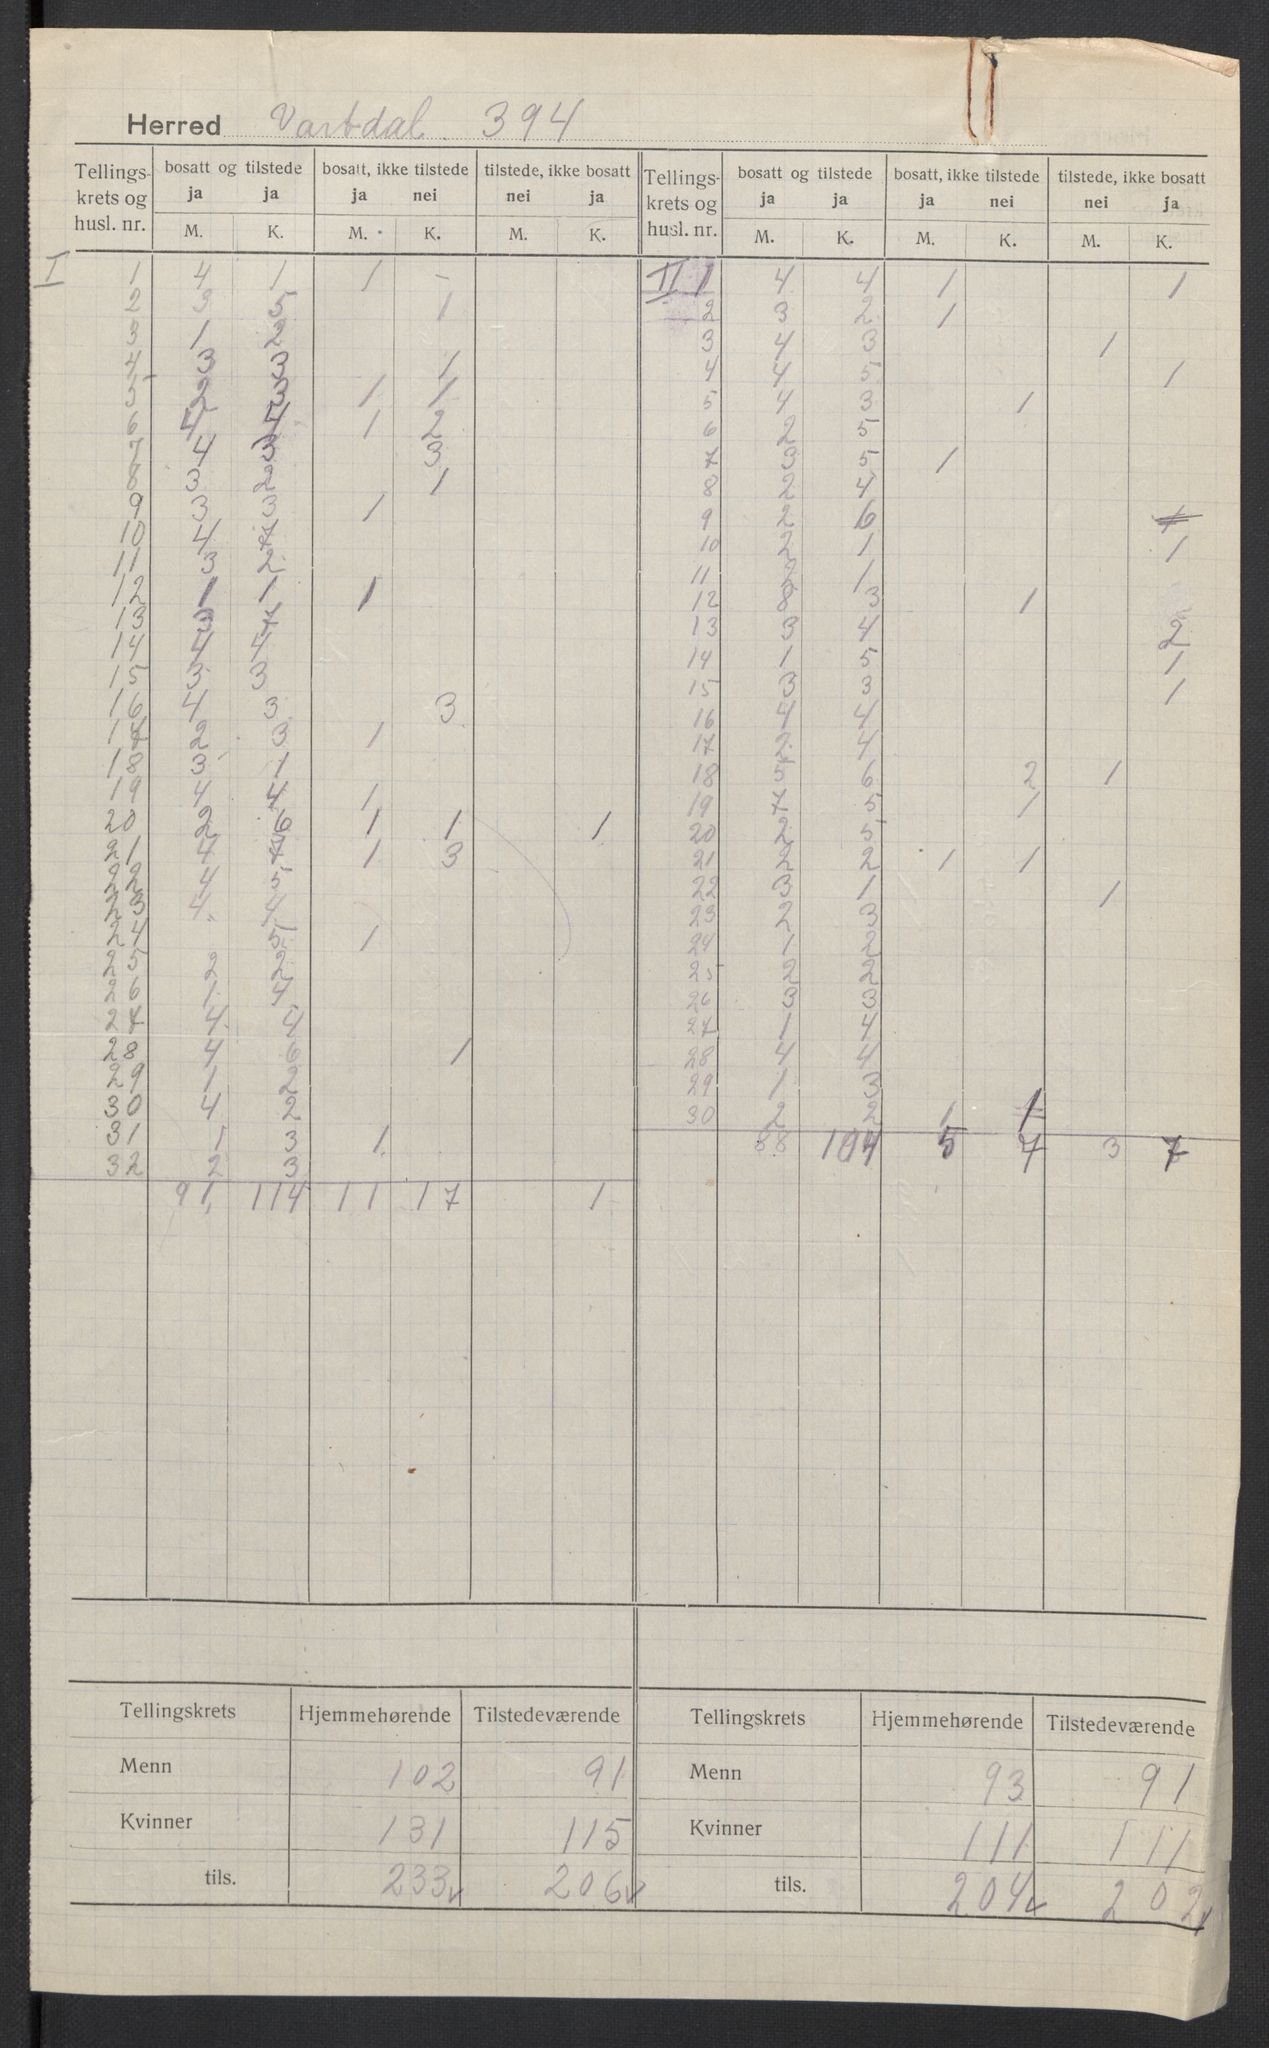 Herred Vartdal 394
Tellings- krets og husl. nr. | bosatt og tilstede | bosatt, ikke tilstede | tilstede, ikke bosatt | Tellings- krets og husl. nr. | bosatt og tilstede | bosatt, ikke tilstede | tilstede, ikke bosatt
ja ja | ja nei | nei ja | ja ja | ja nei | nei ja
M. K. | M. K. | M. K. | M. K. | M. K. | M. K.
I
1 4 1 1 -
2 3 5 1
3 1 2
4 3 3 1
5 2 3 1 1
6 4 1 2
7 4 3 3
8 3 2 1
9 3 3 1
10 4 7
11 3 2
12 1 1 1
13 3 7
14 4 4
15 3 3
16 4 3 3
17 2 3 1
18 3 1
19 4 4 1
20 2 6 1 1 1
21 4 7 1 3
22 4 5
23 4 4
24 5 1
25 2 2
26 1 4
27 4 4
28 4 6 1
29 1 2
30 4 2
31 1 3 1
32 2 3
91 114 11 17 1
II
1 4 4 1 1
2 3 2 1
3 4 3 1
4 4 5 1
5 4 3 1
6 2 5
7 3 5 1
8 2 4
9 2 6 1
10 2 1 1
11 2 1
12 8 3 1
13 3 4 2
14 1 5 1
15 3 3 1
16 4 4
17 2 4
18 5 6 2 1
19 7 5 1
20 2 5
21 2 2 1 1
22 3 1 1
23 2 3
24 1 2
25 2 2
26 3 3
27 1 4
28 4 4
29 1 3
30 2 2 1 1
88 104 5 7 3 7
Tellingskrets | Hjemmehørende | Tilstedeværende | Tellingskrets | Hjemmehørende | Tilstedeværende
Menn 102 91 | Menn 93 91
Kvinner 131 115 | Kvinner 111 111
tils. 233 206 | tils. 204 202